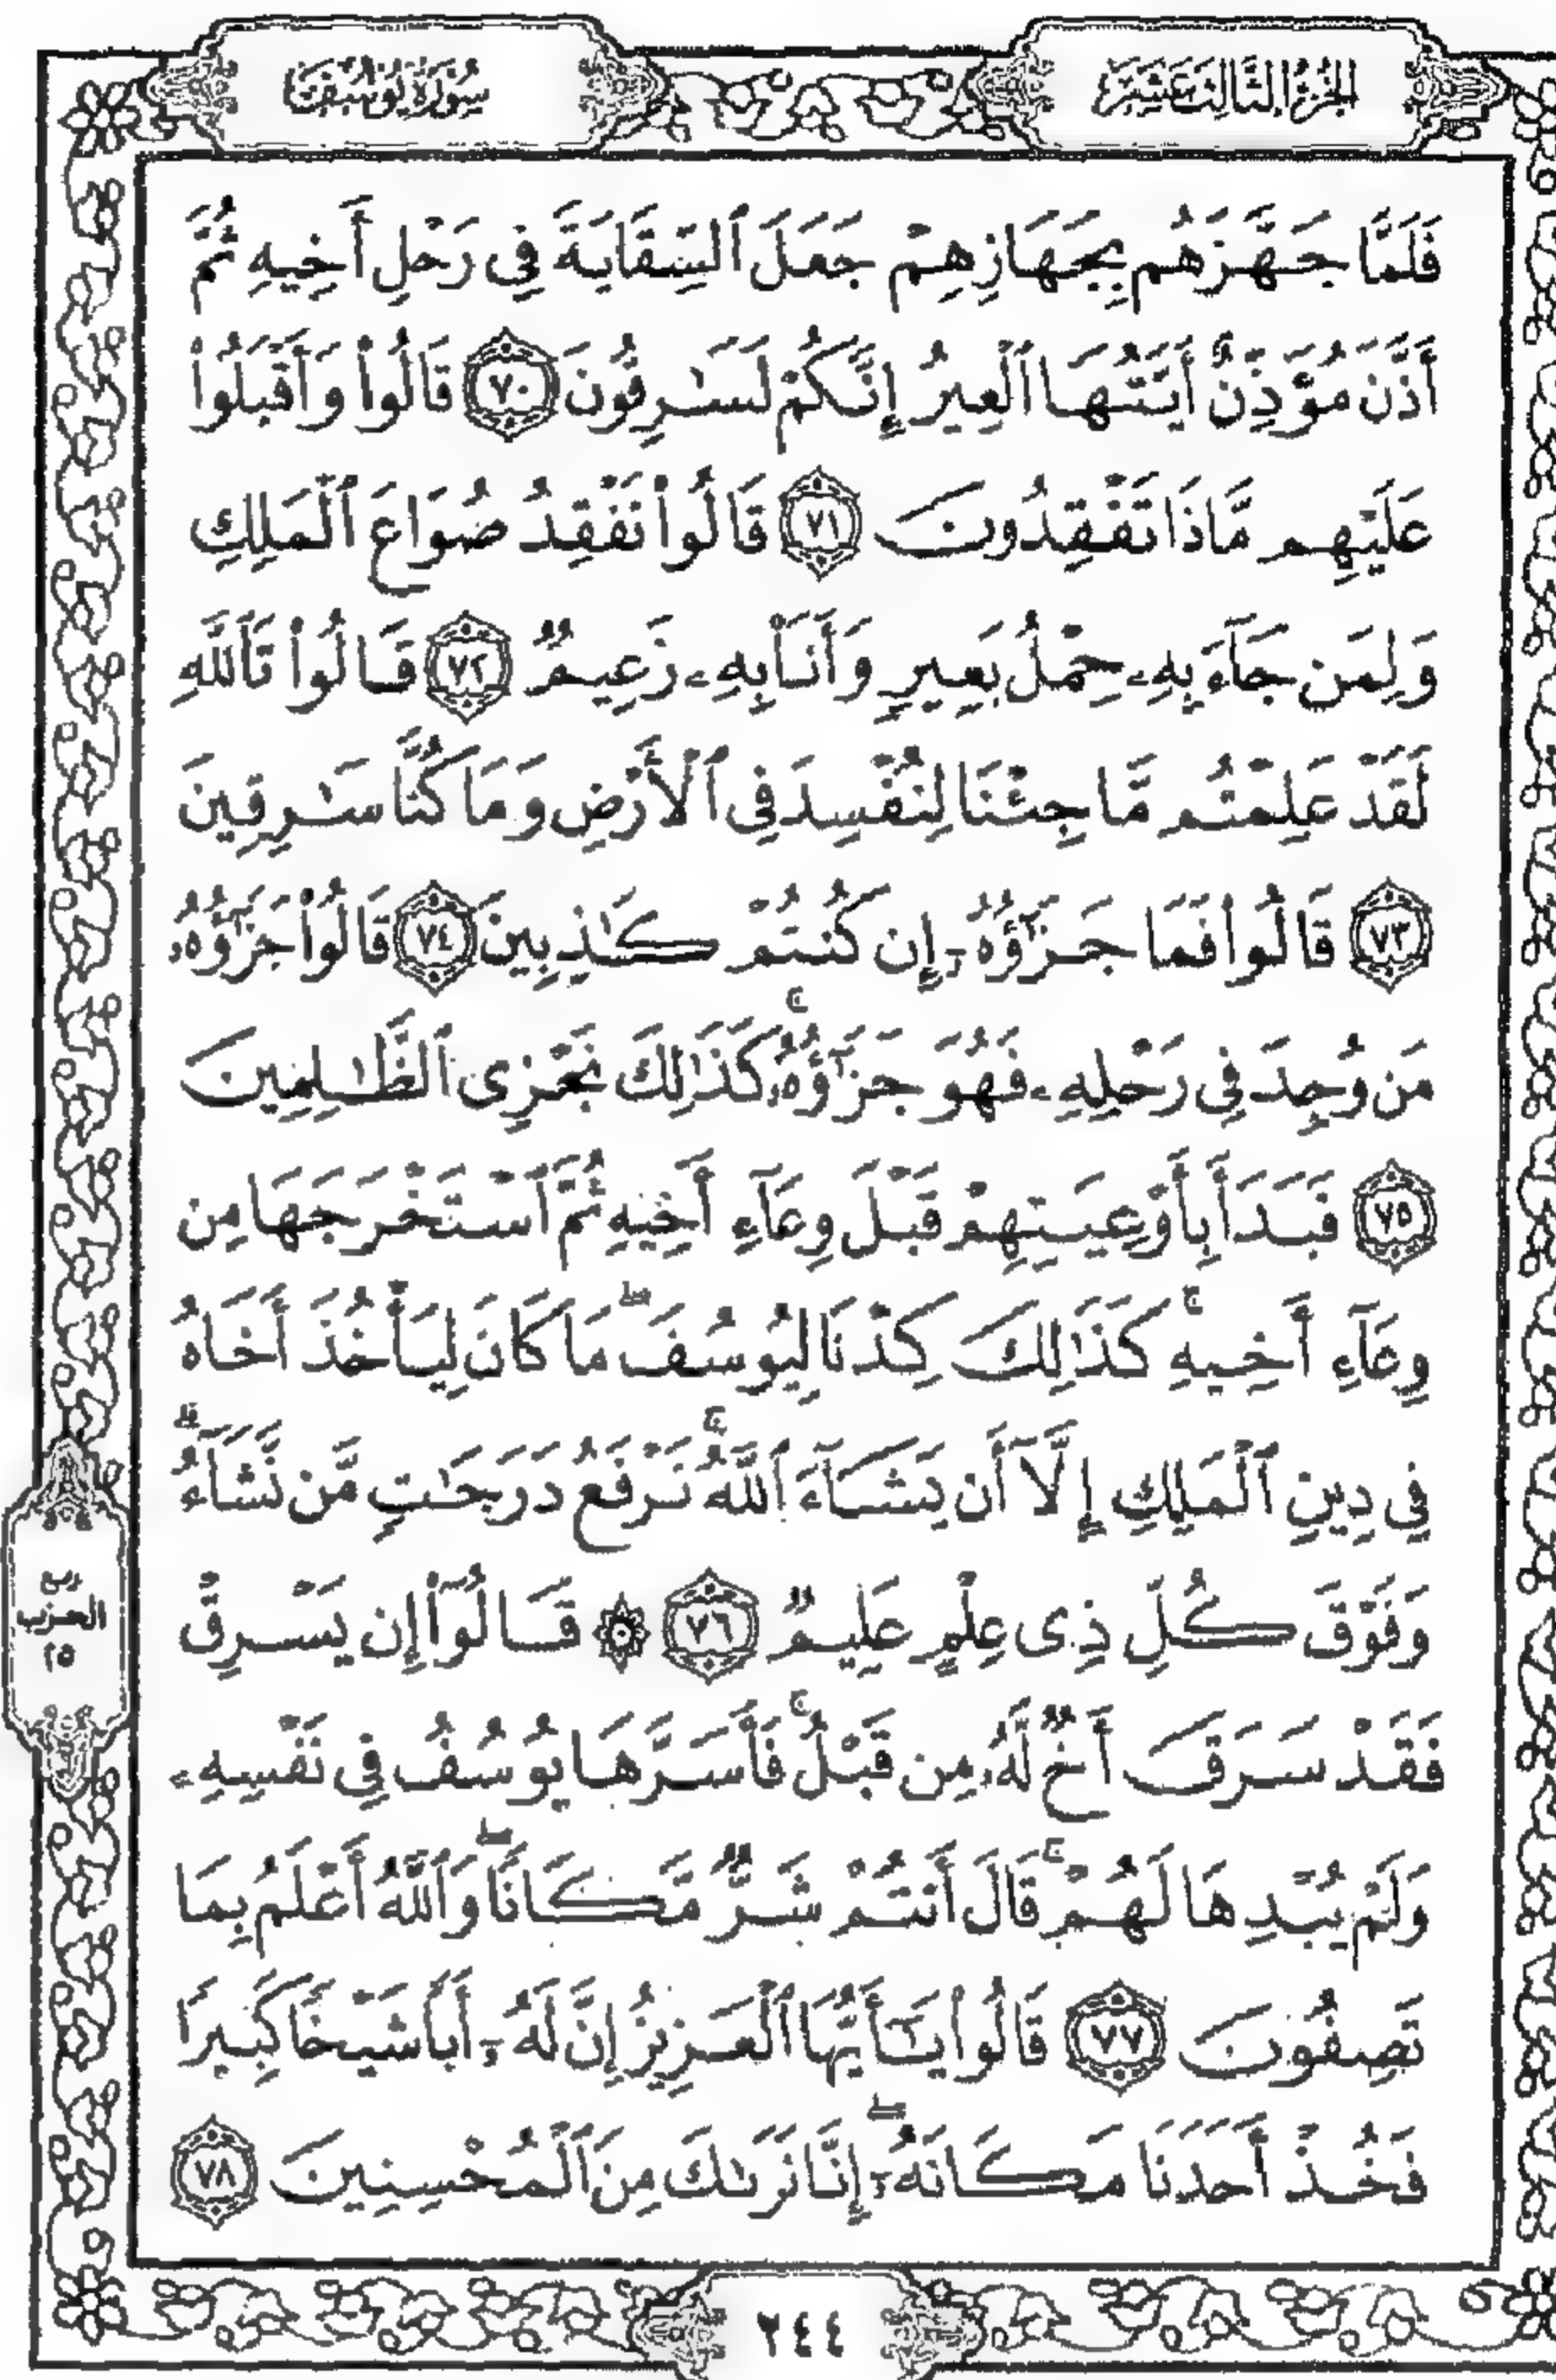 الجزء الثالث عشر
سورة يوسف
فَلَمَّا جَهَّزَهُم بِجَهَازِهِمْ جَعَلَ ٱلسِّقَايَةَ فِي رَحْلِ أَخِيهِ ثُمَّ
أَذَّنَ مُؤَذِّنٌ أَيَّتُهَا ٱلْعِيرُ إِنَّكُمْ لَسَٰرِقُونَ ٧٠ قَالُوا۟ وَأَقْبَلُوا۟
عَلَيْهِم مَّاذَا تَفْقِدُونَ ٧١ قَالُوا۟ نَفْقِدُ صُوَاعَ ٱلْمَلِكِ
وَلِمَن جَآءَ بِهِۦ حِمْلُ بَعِيرٍ وَأَنَا۠ بِهِۦ زَعِيمٌ ٧٢ قَالُوا۟ تَٱللَّهِ
لَقَدْ عَلِمْتُم مَّا جِئْنَا لِنُفْسِدَ فِى ٱلْأَرْضِ وَمَا كُنَّا سَٰرِقِينَ
٧٣ قَالُوا۟ فَمَا جَزَٰٓؤُهُۥٓ إِن كُنتُمْ كَٰذِبِينَ ٧٤ قَالُوا۟ جَزَٰٓؤُهُۥ
مَن وُجِدَ فِى رَحْلِهِۦ فَهُوَ جَزَٰٓؤُهُۥۚ كَذَٰلِكَ نَجْزِى ٱلظَّٰلِمِينَ
٧٥ فَبَدَأَ بِأَوْعِيَتِهِمْ قَبْلَ وِعَآءِ أَخِيهِ ثُمَّ ٱسْتَخْرَجَهَا مِن
وِعَآءِ أَخِيهِۚ كَذَٰلِكَ كِدْنَا لِيُوسُفَۖ مَا كَانَ لِيَأْخُذَ أَخَاهُ
فِي دِينِ ٱلْمَلِكِ إِلَّآ أَن يَشَآءَ ٱللَّهُۚ نَرْفَعُ دَرَجَٰتٍ مَّن نَّشَآءُۗ
وَفَوْقَ كُلِّ ذِى عِلْمٍ عَلِيمٌ ٧٦ ۞ قَالُوٓا۟ إِن يَسْرِقْ
فَقَدْ سَرَقَ أَخٌ لَّهُۥ مِن قَبْلُۚ فَأَسَرَّهَا يُوسُفُ فِي نَفْسِهِۦ
وَلَمْ يُبْدِهَا لَهُمْۚ قَالَ أَنتُمْ شَرٌّ مَّكَانًاۖ وَٱللَّهُ أَعْلَمُ بِمَا
تَصِفُونَ ٧٧ قَالُوا۟ يَٰٓأَيُّهَا ٱلْعَزِيزُ إِنَّ لَهُۥٓ أَبًا شَيْخًا كَبِيرًا
فَخُذْ أَحَدَنَا مَكَانَهُۥٓۖ إِنَّا نَرَىٰكَ مِنَ ٱلْمُحْسِنِينَ ٧٨
ربع
الحزب
٢٥
٢٤٤